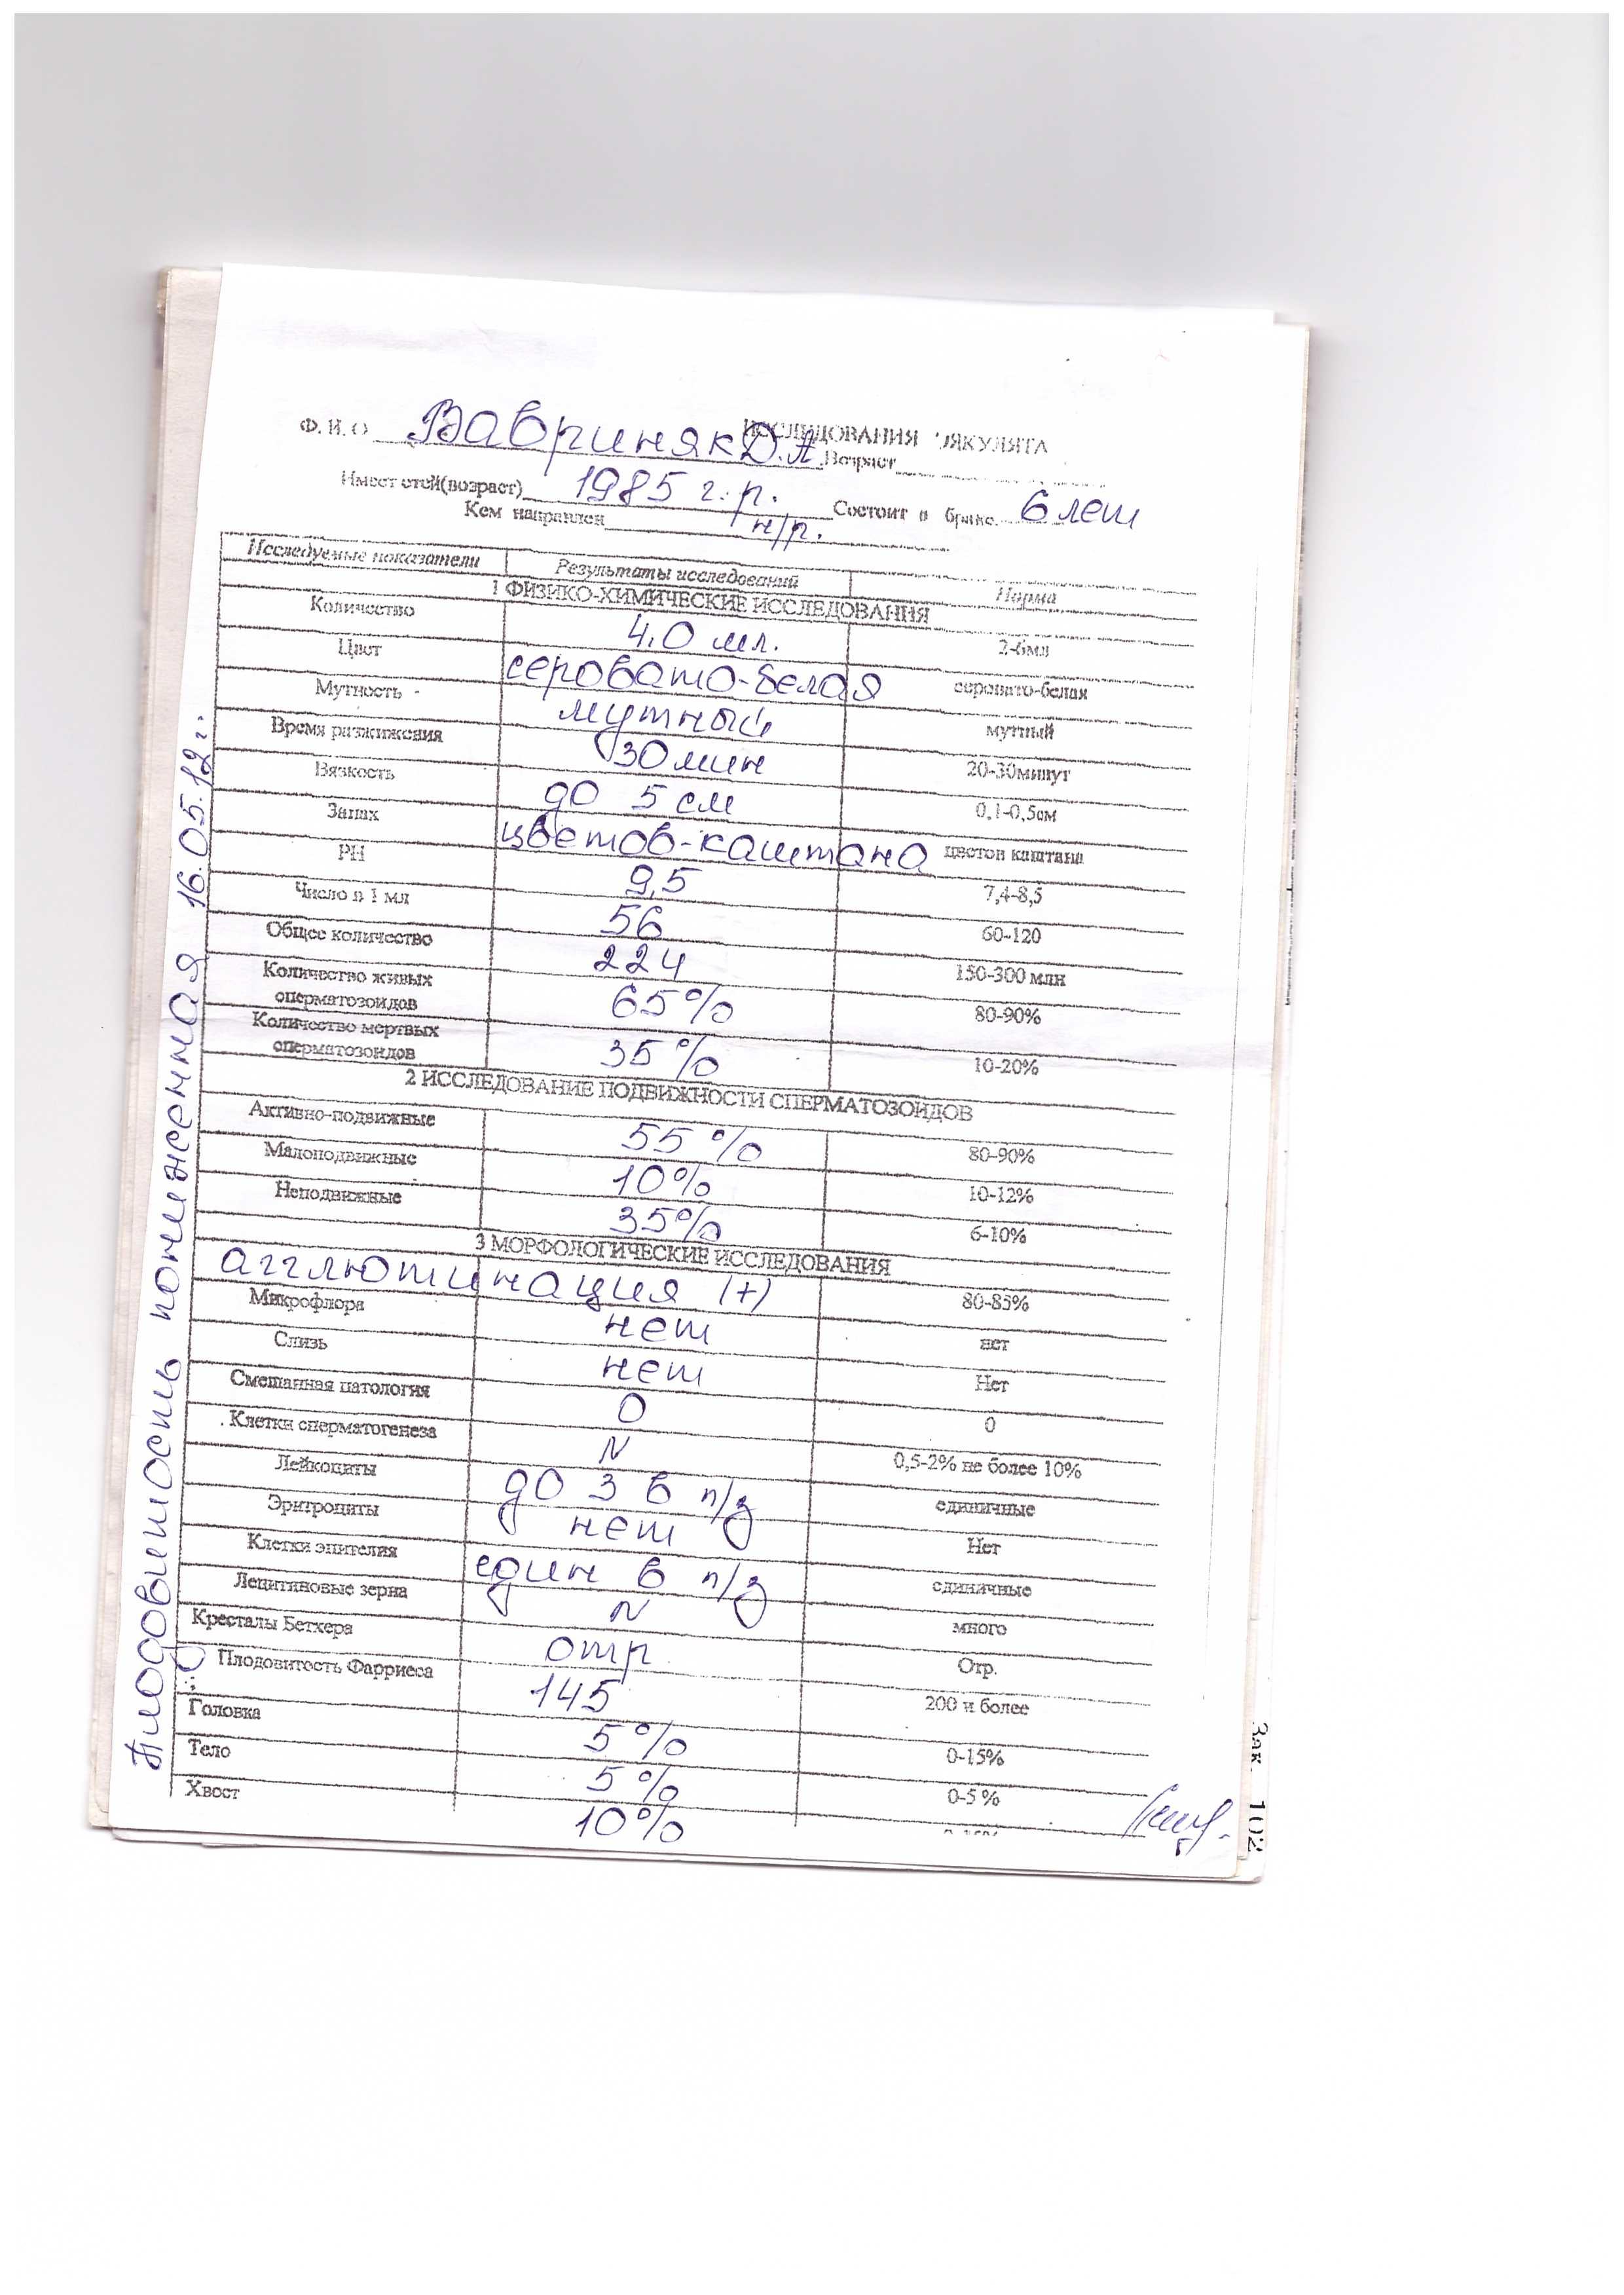 ИССЛЕДОВАНИЯ ЭЯКУЛЯТА
Ф. И. О Вавриняк Д.А. Возраст
Имеет етей(возраст) 1985 г. р. Состоит в браке 6 лет
Кем направлен н/р.
Исследуемые показатели Результаты исследований Норма
1 ФИЗИКО-ХИМИЧЕСКИЕ ИССЛЕДОВАНИЯ
Количество 4,0 мл. 2-6мл
Цвет серовато-белая серовато-белая
Мутность - мутный мутный
Время разжижения 30 мин 20-30минут
Вязкость до 5 см 0,1-0,5см
Запах цветов-каштана цветов каштана
РН 9,5 7,4-8,5
Число в 1 мл 56 60-120
Общее количество 224 150-300 млн
Количество живых сперматозоидов 65% 80-90%
Количество мертвых сперматозоидов 35% 10-20%
2 ИССЛЕДОВАНИЕ ПОДВИЖНОСТИ СПЕРМАТОЗОИДОВ
Активно-подвижные 55% 80-90%
Малоподвижные 10% 10-12%
Неподвижные 35% 6-10%
3 МОРФОЛОГИЧЕСКИЕ ИССЛЕДОВАНИЯ
агглютинация (+) 80-85%
Микрофлора нет нет
Слизь нет Нет
Смешанная патология 0 0
Клетки сперматогенеза N 0,5-2% не более 10%
Лейкоциты до 3 в п/з единичные
Эритроциты нет Нет
Клетки эпителия един в п/з единичные
Лецитиновые зерна N много
Кресталы Бетхера отр Отр.
Плодовитость Фарриеса 145 200 и более
Головка 5% 0-15%
Тело 5% 0-5 %
Хвост 10%
Плодовитость пониженная 16.05.12 г.
Зак 102